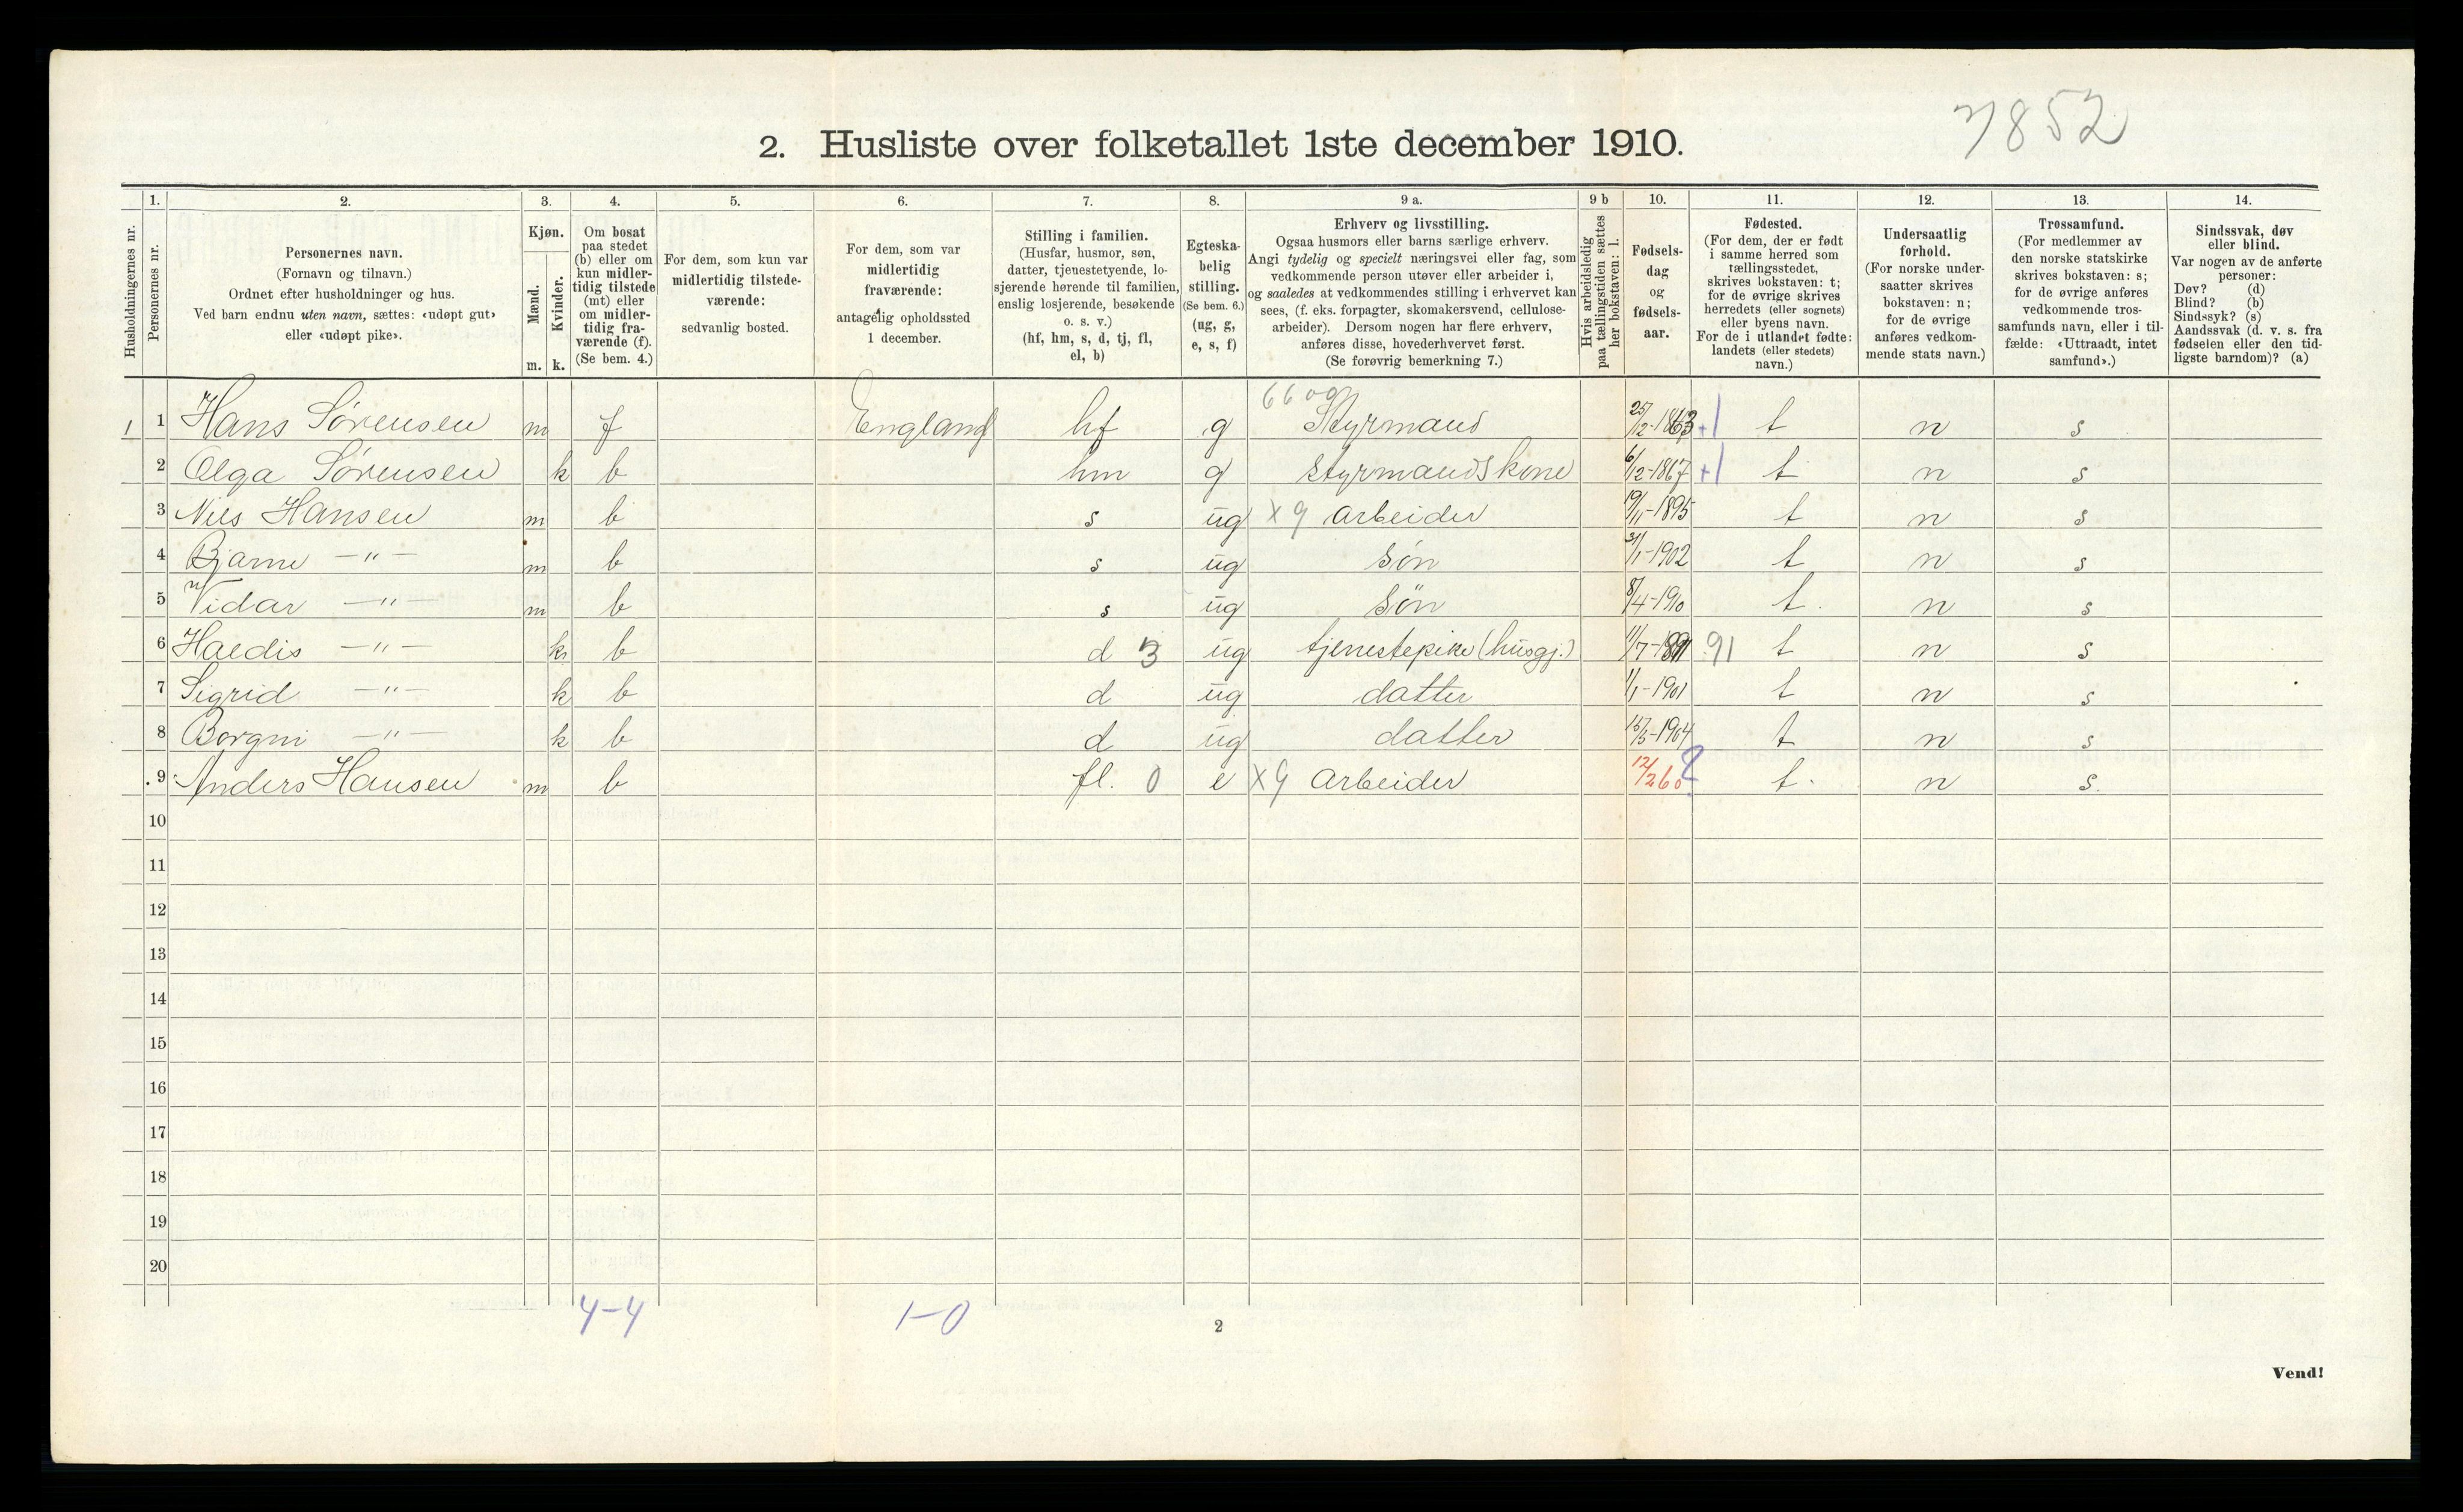 7852
2. Husliste over folketallet 1ste december 1910.
1. 2. 3. 4. 5. 6. 7. 8. 9 a. 9 b 10. 11. 12. 13. 14.
Husholdningernes nr.
Personernes nr.
Personernes navn.
(Fornavn og tilnavn.)
Ordnet efter husholdninger og hus.
Ved barn endnu uten navn, sættes: «udøpt gut»
eller «udøpt pike».
Kjøn.
Mænd.
Kvinder.
m. k.
Om bosat
paa stedet
(b) eller om
kun midler-
tidig tilstede
(mt) eller
om midler-
tidig fra-
værende (f).
(Se bem. 4.)
For dem, som kun var
midlertidig tilstede-
værende:
sedvanlig bosted.
For dem, som var
midlertidig
fraværende:
antagelig opholdssted
1 december.
Stilling i familien.
(Husfar, husmor, søn,
datter, tjenestetyende, lo-
sjerende hørende til familien,
enslig losjerende, besøkende
o. s. v.)
(hf, hm, s, d, tj, fl,
el, b)
Egteska-
belig
stilling.
(Se bem. 6.)
(ug, g,
e, s, f)
Erhverv og livsstilling.
Ogsaa husmors eller barns særlige erhverv.
Angi tydelig og specielt næringsvei eller fag, som
vedkommende person utøver eller arbeider i,
og saaledes at vedkommendes stilling i erhvervet kan
sees, (f. eks. forpagter, skomakersvend, cellulose-
arbeider). Dersom nogen har flere erhverv,
anføres disse, hovederhvervet først.
(Se forøvrig bemerkning 7.)
Hvis arbeidsledig
paa tællingstiden sættes
her bokstaven: l.
Fødsels-
dag
og
fødsels-
aar.
Fødested.
(For dem, der er født
i samme herred som
tællingsstedet,
skrives bokstaven: t;
for de øvrige skrives
herredets (eller sognets)
eller byens navn.
For de i utlandet fødte:
landets (eller stedets)
navn.)
Undersaatlig
forhold.
(For norske under-
saatter skrives
bokstaven: n;
for de øvrige
anføres vedkom-
mende stats navn.)
Trossamfund.
(For medlemmer av
den norske statskirke
skrives bokstaven: s;
for de øvrige anføres
vedkommende tros-
samfunds navn, eller i til-
fælde: «Uttraadt, intet
samfund».)
Sindssvak, døv
eller blind.
Var nogen av de anførte
personer:
Døv? (d)
Blind? (b)
Sindssyk? (s)
Aandssvak (d. v. s. fra
fødselen eller den tid-
ligste barndom)? (a)
1 1 Hans Sørensen m f England hf g Styrmand 25/12-1863 +1 t n s
2 Olga Sørensen k b hm g styrmandskone 6/12-1867 +1 t n s
3 Nils Hansen m b s ug x 9 arbeider 19/11-1895 t n s
4 Bjarne -"- m b s ug søn 31/1-1902 t n s
5 Vidar -"- m b s ug søn 8/4-1910 t. n s
6 Haldis -"- k b d 3 ug tjenestepike (husgj.) 11/7-1891 91 t n s
7 Sigrid -"- k b d ug datter 1/1-1901 t n s
8 Borgni -"- k b d ug datter 15/3-1904 t n s
9 Anders Hansen m b fl. 0 e x 9 arbeider 12/2 60 ? t. n s.
10
11
12
13
14
15
16
17
18
19
20
4-4 1-0
2
Vend!